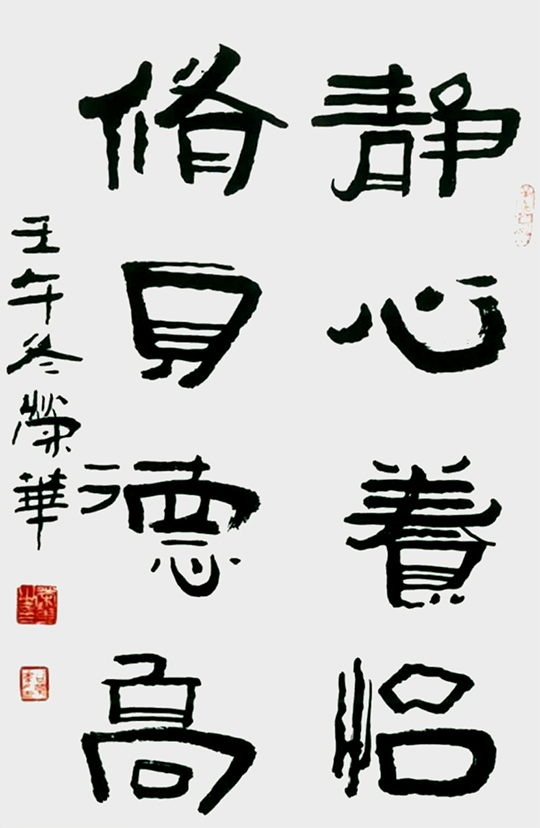 静心養怡
脩德高
壬午冬榮華